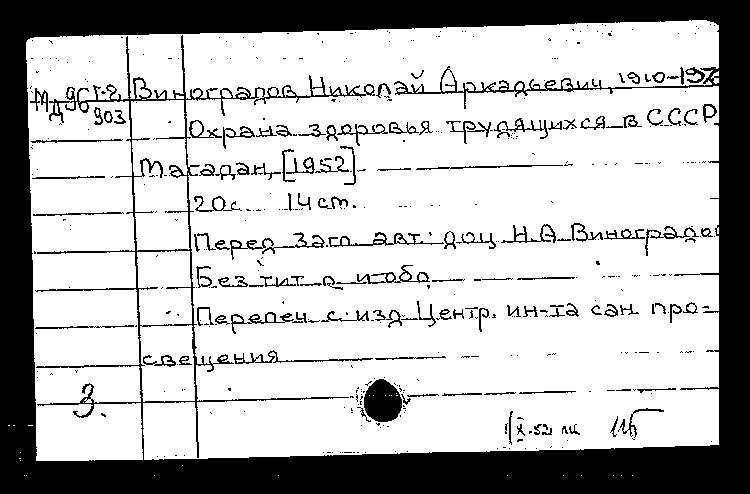 МД 96 Г-2, Виноградов, Николай Аркадьевич, 1910-197
903
Охрана здоровья трудящихся в СССР.
Магадан, [1952]
20с. 14 cm.
Перед загл. авт.: доц. Н.А. Виноградов
Без тит. л. и обл.
Перепеч. с изд. Центр. ин-та сан. про=
свещения
3.